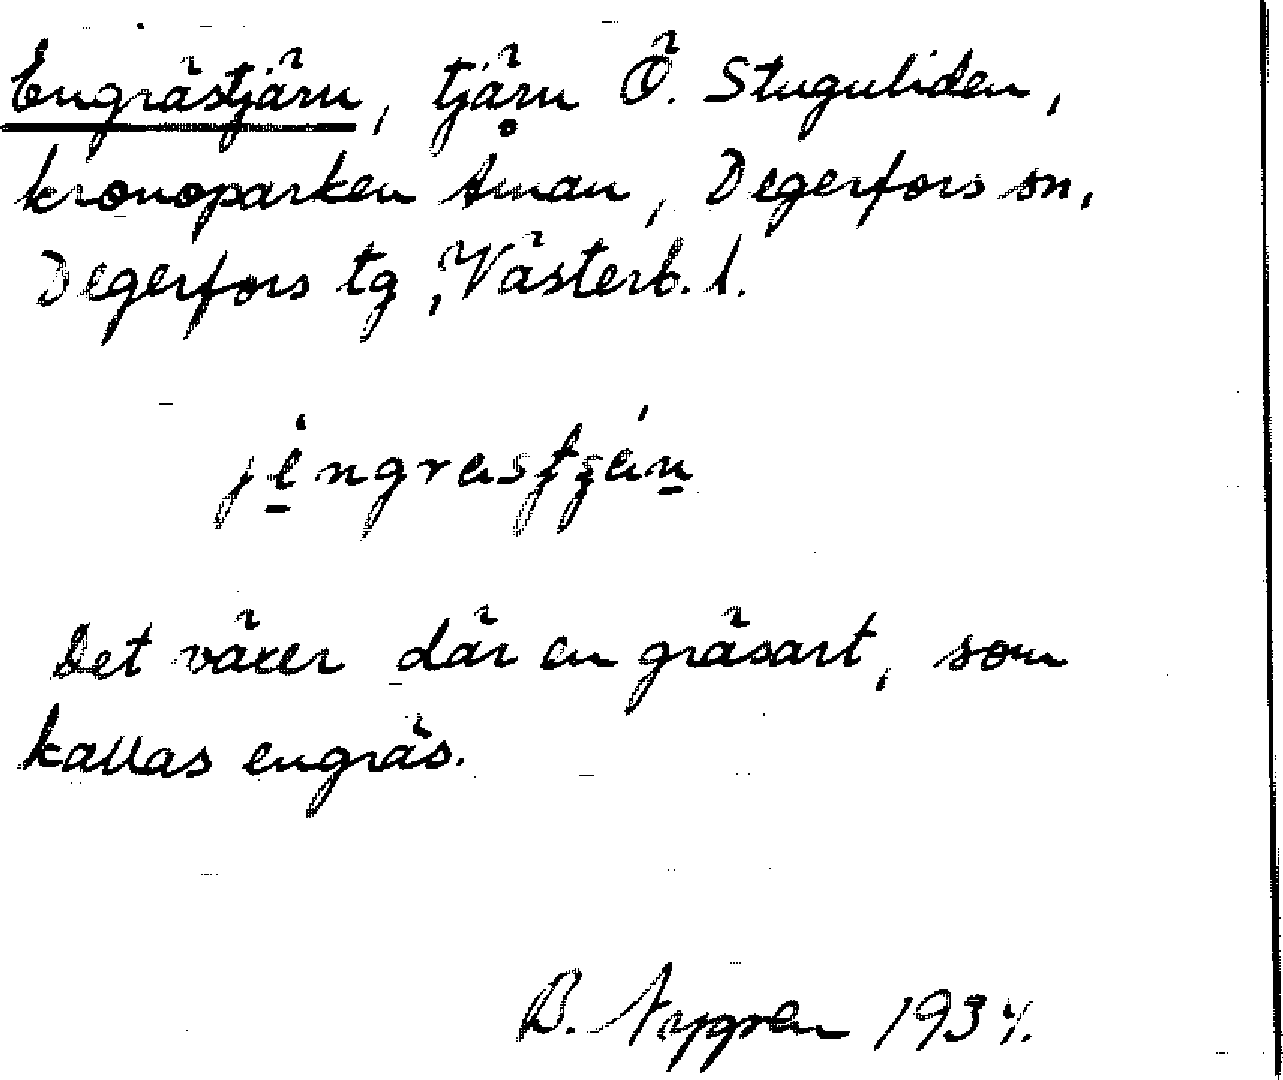 Engrästjärn, tjärn Ö. Stuguliden,
kronoparken Åman, Degerfors sn,
Degerfors tg, Västerb. l.
Det växer där en gräsart, som
kallas engräs.
B. Nygren 1934.